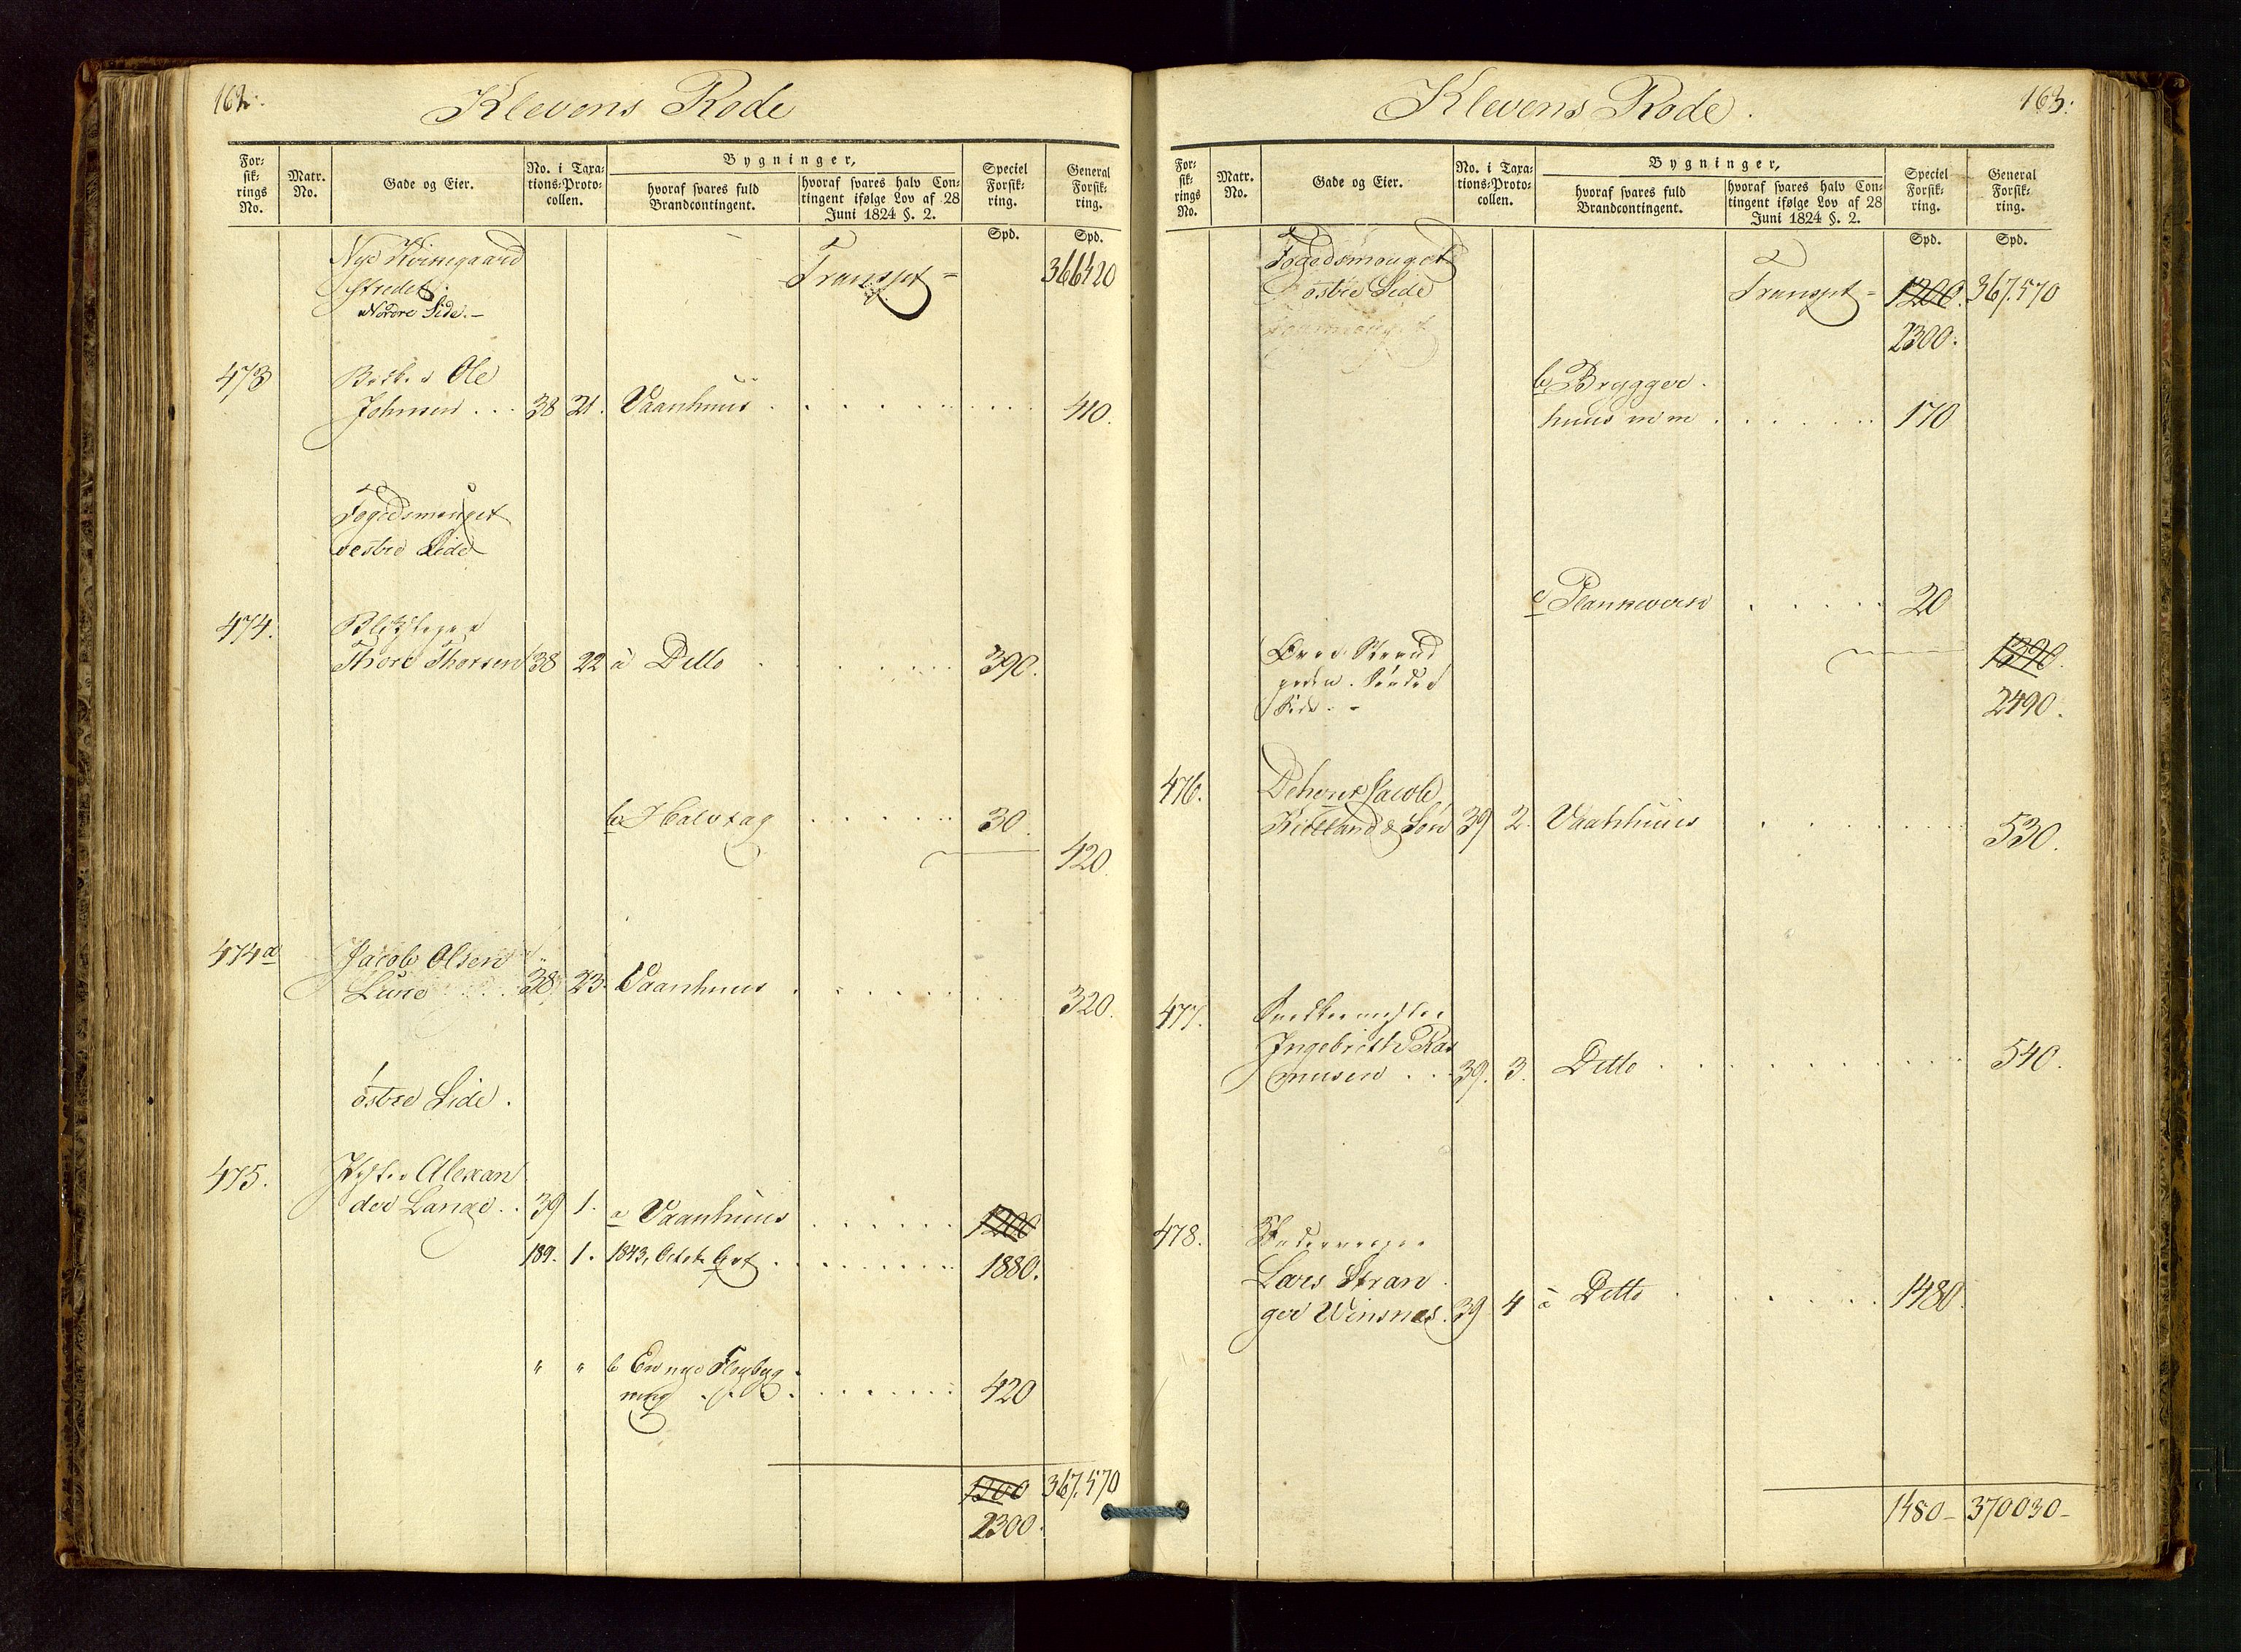 162.
Klevens Rode
For:
sik:
rings
No.
Matr.
No.
Gade og Eier.
No. i Taxa:
tions:Proto:
collen.
Bygninger,
hvoraf svares fuld
Brandcontingent.
hvoraf svares halv Con:
tingent ifølge Lov af 28
Juni 1824 §. 2.
Speciel
Forsik:
ring.
General
Forsik:
ring.
Spd. Spd.
Nye
Strædet
Nordre Side.-
Transpt = 366420
473 Ole
Johnsen . . . 38 21. Vaanhuus . . . . . 410.
Fogedsmauget
vestre Side
474.
Thore Thorsen 38 22 a Ditto . . . . . 390.
b Halvtag . . . . . 30.
420.
474a Jacob Olsen
Lund . . . 38. 23. Vaanhuus . . . . . 320.
østre Side.
475. Alexan
der Lange . . 39 1. a Vaanhuus . . . . . 1200
189. 1. 1843, . . . . . 1880.
" " b En nye
ning . . . . . 420
1200 367.570
2300.
Klevens Rode.
163.
For:
sik:
rings
No.
Matr.
No.
Gade og Eier.
No. i Taxa:
tions:Proto:
collen.
Bygninger,
hvoraf svares fuld
Brandcontingent.
hvoraf svares halv Con:
tingent ifølge Lov af 28
Juni 1824 §. 2.
Speciel
Forsik:
ring.
General
Forsik:
ring.
Spd. Spd.
Fogedsmauget
østre Side
Transpt = 1200. 367.570
2300.
b Brygger
huus m m . . . . . 170
c Plankeverk . . . . . 20
1390.
2490.
Side. -
476. Jacob
Kielland & Søn 39 2. Vaanhuus . . . . . 530.
477.
Ingebreth Ras
musen . . . 39. 3. Ditto . . . . . 540.
478.
Lars Stran
ger Winsnes. 39 4 a Ditto . . . . . 1480.
1480- 370030-